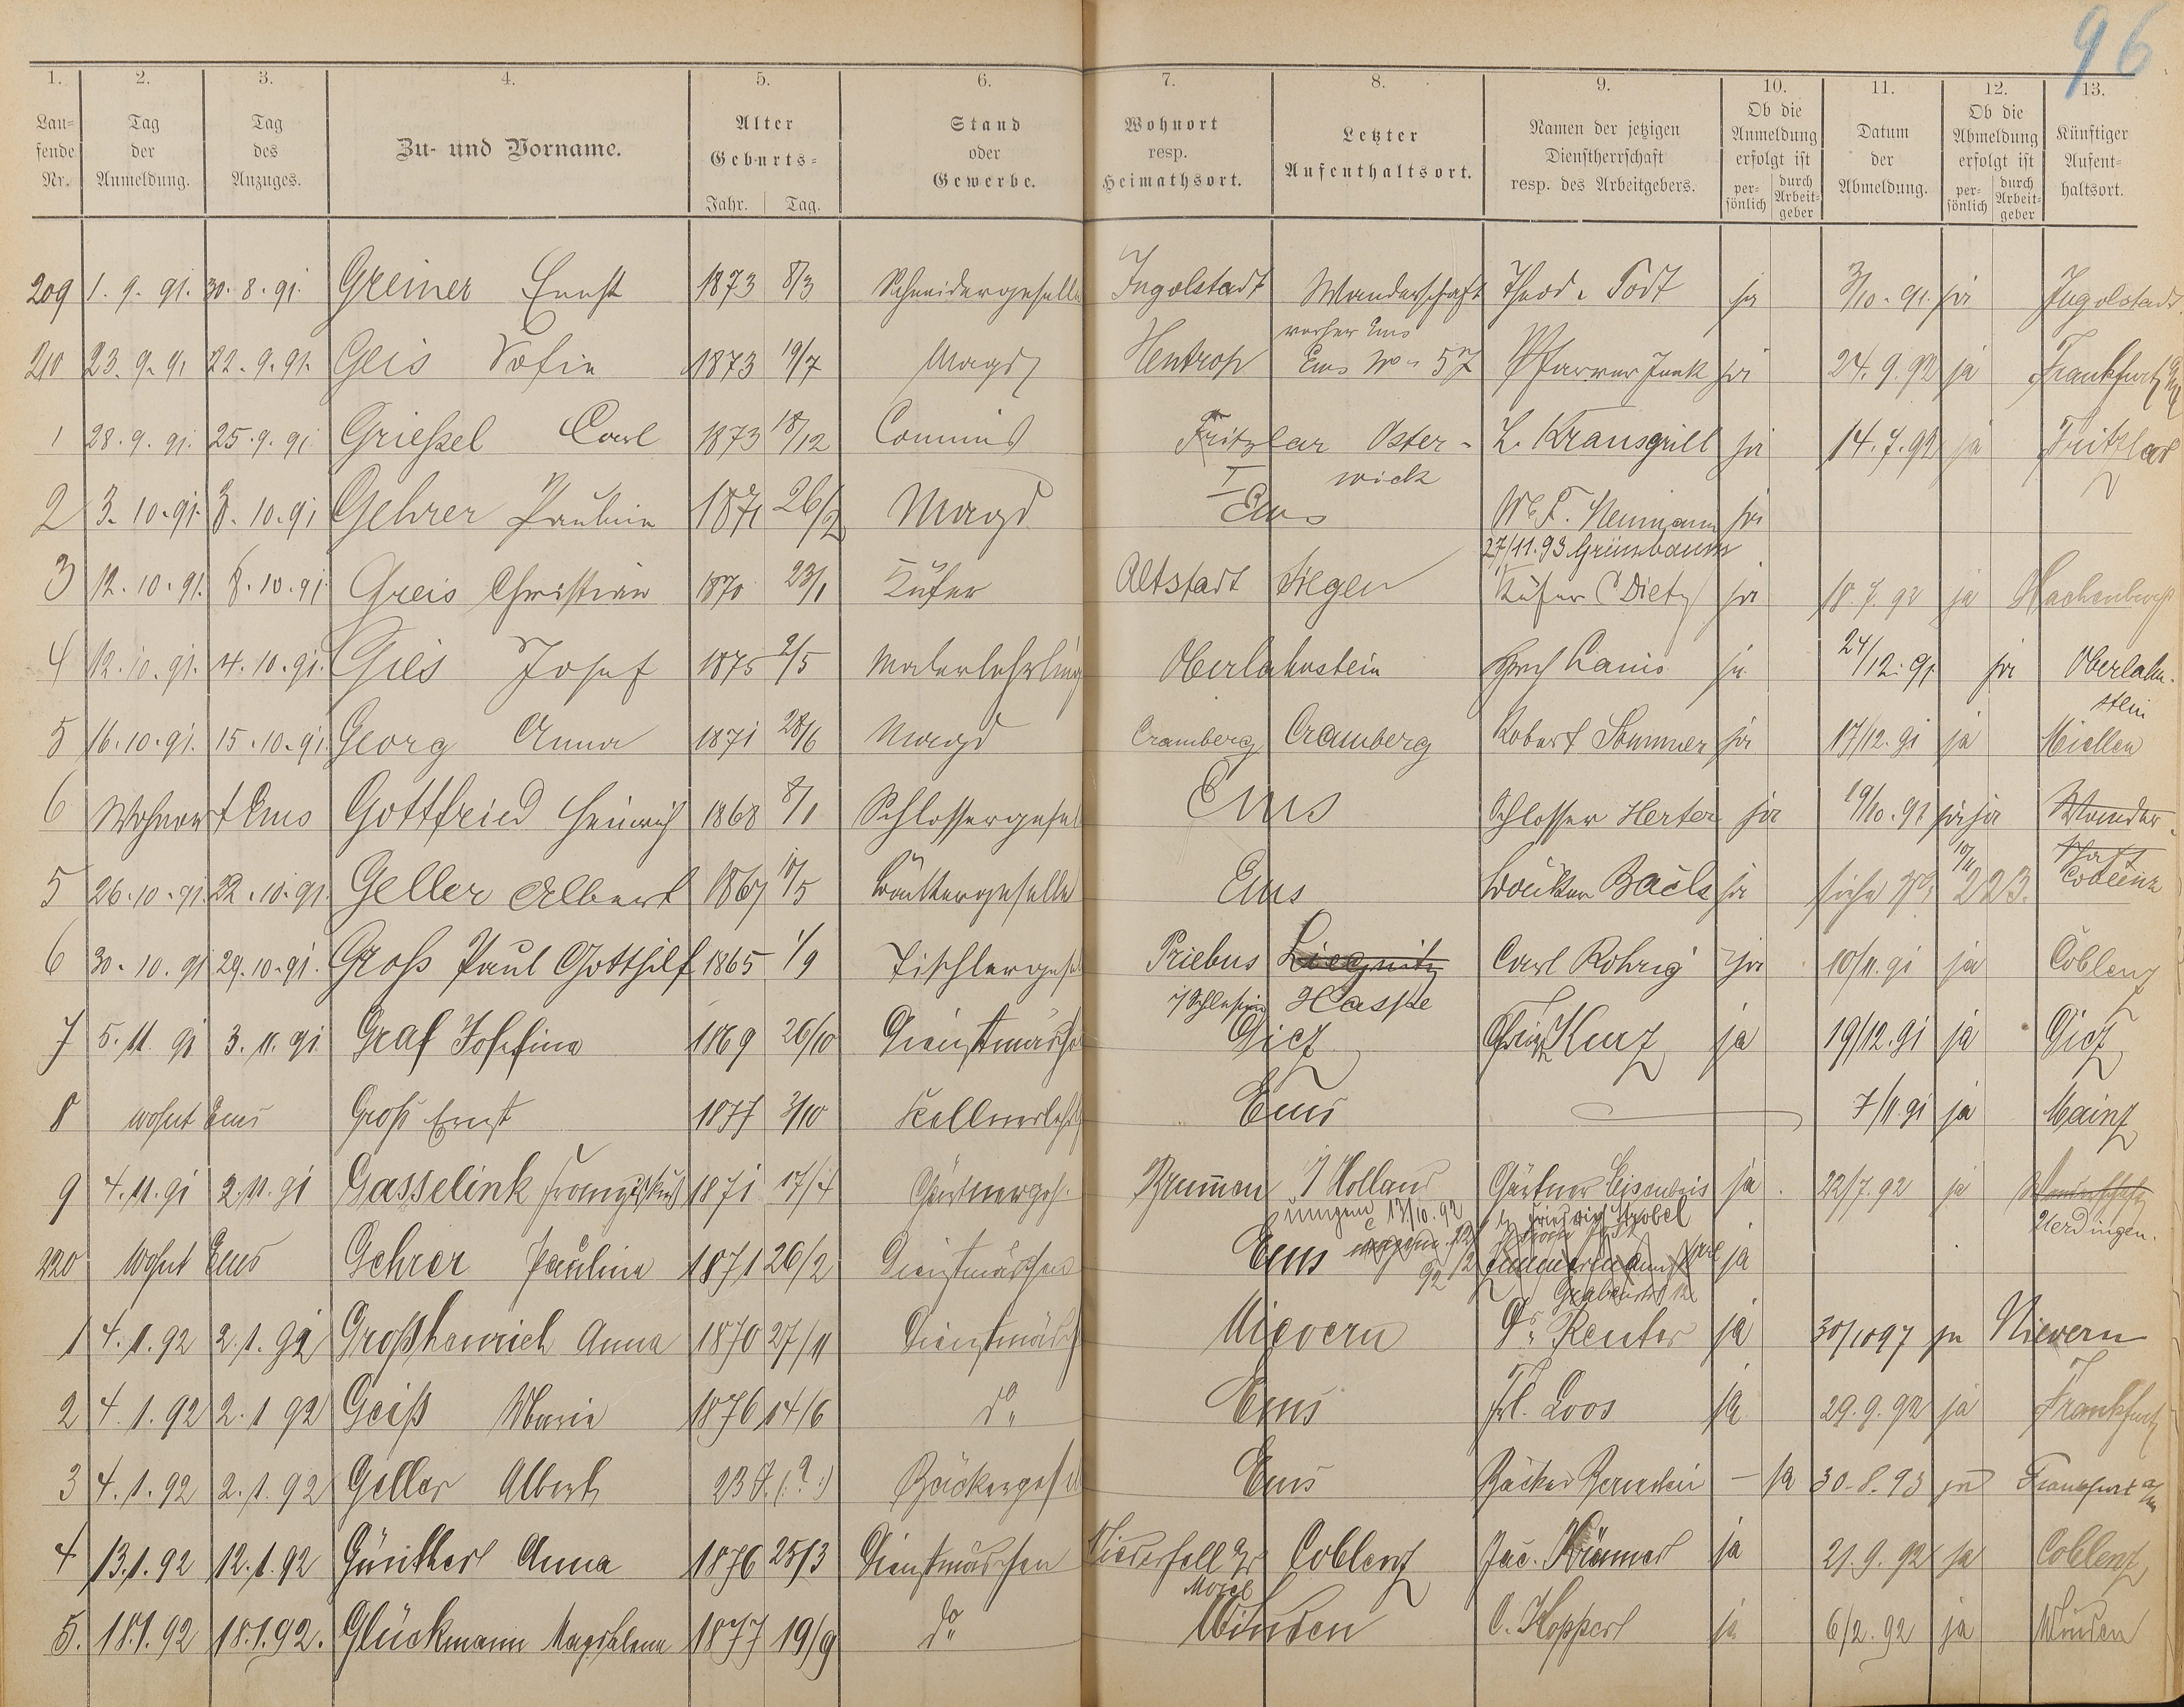 96
1. 2. 3. 4. 5. 6. 7. 8. 9. 10. 11. 12. 13.
Lau- fende Nr. Tag der Anmeldung. Tag des Anzuges. Zu- und Vorname. Alter Geburts- Jahr. Tag. Stand oder Gewerbe. Wohnort resp. Heimathsort. Letzter Aufenthaltsort. Namen der jetzigen Dienstherrschaft resp. des Arbeitgebers. Ob die Anmeldung erfolgt ist per- sönlich durch Arbeit- geber Datum der Abmeldung. Ob die Abmeldung erfolgt ist per- sönlich durch Arbeit- geber Künftiger Aufent- haltsort.
209 1. 9. 91. 30. 8. 91. Greiner Ernst 1873 8/3 Schneidergeselle Ingolstadt Wanderschaft Theod. Todt ja 3/10. 91. ja Ingolstadt
vorher Ems
210 23. 9. 91 22. 9. 91. Geis Sofie 1873 19/7 Magd Hentrop Ems No 57 Pfarrer ja 24. 9. 92 ja Frankfurt
1 28. 9. 91. 25. 9. 91 Grießel Carl 1873 18/12 Commis Fritzlar Oster- L. Kransgrill ja 14. 7. 92 ja Fritzlar
wick
2 3. 10. 91. 3. 10. 91 Gehrer Pauline 1871 26/2 Magd Ems We. F. Neumann ja
27/11. 93 Grünebaum
3 12. 10. 91. 8. 10. 91. Greis Christian 1870 23/1 Küfer Altstadt Siegen Küfer C Dietz ja 18. 7. 92 ja Hachenburg
4 12. 10. 91. 4. 10. 91. Gies Josef 1875 2/5 Malerlehrling Oberlahnstein ja 24/12. 91 ja Oberlahn-
stein
5 16. 10. 91. 15. 10. 91. Georg Anna 1871 28/6 Magd Cramberg Cramberg Robert Sommer ja 17/12. 91 ja Miellen
6 Wohnort Ems Gottfried Heinrich 1868 8/1 Schlossergesel Ems Schlosser Herter ja 19/10. 91 ja ja Wander-
schaft
5 26. 10. 91. 22. 10. 91. Geller Albert 1867 10/5 Bäckergeselle Ems Bäcker ja siehe No. 223. Coblenz
6 30. 10. 91 29. 10. 91. Groß Paul Gotthilf 1865 1/9 Tischlergesel Priebus Liegnitz Carl Rohrig ja 10/11. 91 ja Coblenz
i/Schlesien Haspe
7 5. 11. 91 3. 11. 91. Graf Josefine 1869 26/10 Dienstmädchen Diez Kurz ja 19/12. 91 ja Diez
8 wohnt Ems Groß Ernst 1877 3/10 Kellnerlehrlg Ems 7/11 91 ja Mainz
9 4. 11. 91 2. 11. 91 Gasselink Franziskus 1871 17/4 Gärtnergeh. Brumen I Holland Gärtner ja 22/7. 92 ja Wanderschaft
13/10. 92 Friedrich Strobel Uerdingen.
220 Wohnt Ems Gehrer Pauline 1871 26/2 Dienstmädchen Ems Zimmermann ja
1 4. 1. 92 2. 1. 92 Großhenrich Anna 1870 27/11 Dienstmädch Nievern Dr. Reuter ja 30/10 97 ja Nievern
2 4. 1. 92 2. 1 92 Geiß Marie 1876 14/6 do. Ems Frl. Loos ja 29. 9. 92 ja Frankfurt
3 4. 1. 92 2. 1. 92 Geller Albert 23 J. (?) Bäckergesell Ems Bäcker - ja 30. 8. 93 ja Frankfurt a/M
4 13. 1. 92 12. 1. 92 Günther Anna 1876 25/3 Dienstmädchen Niederfell Coblenz Jac. Krämer ja 21. 9. 92 ja Coblenz
Mosel
5. 18. 1. 92 18. 1. 92. Glückmann Magdalena 1877 19/9 do. Winden C. Koppert ja 6/2. 92 ja Winden